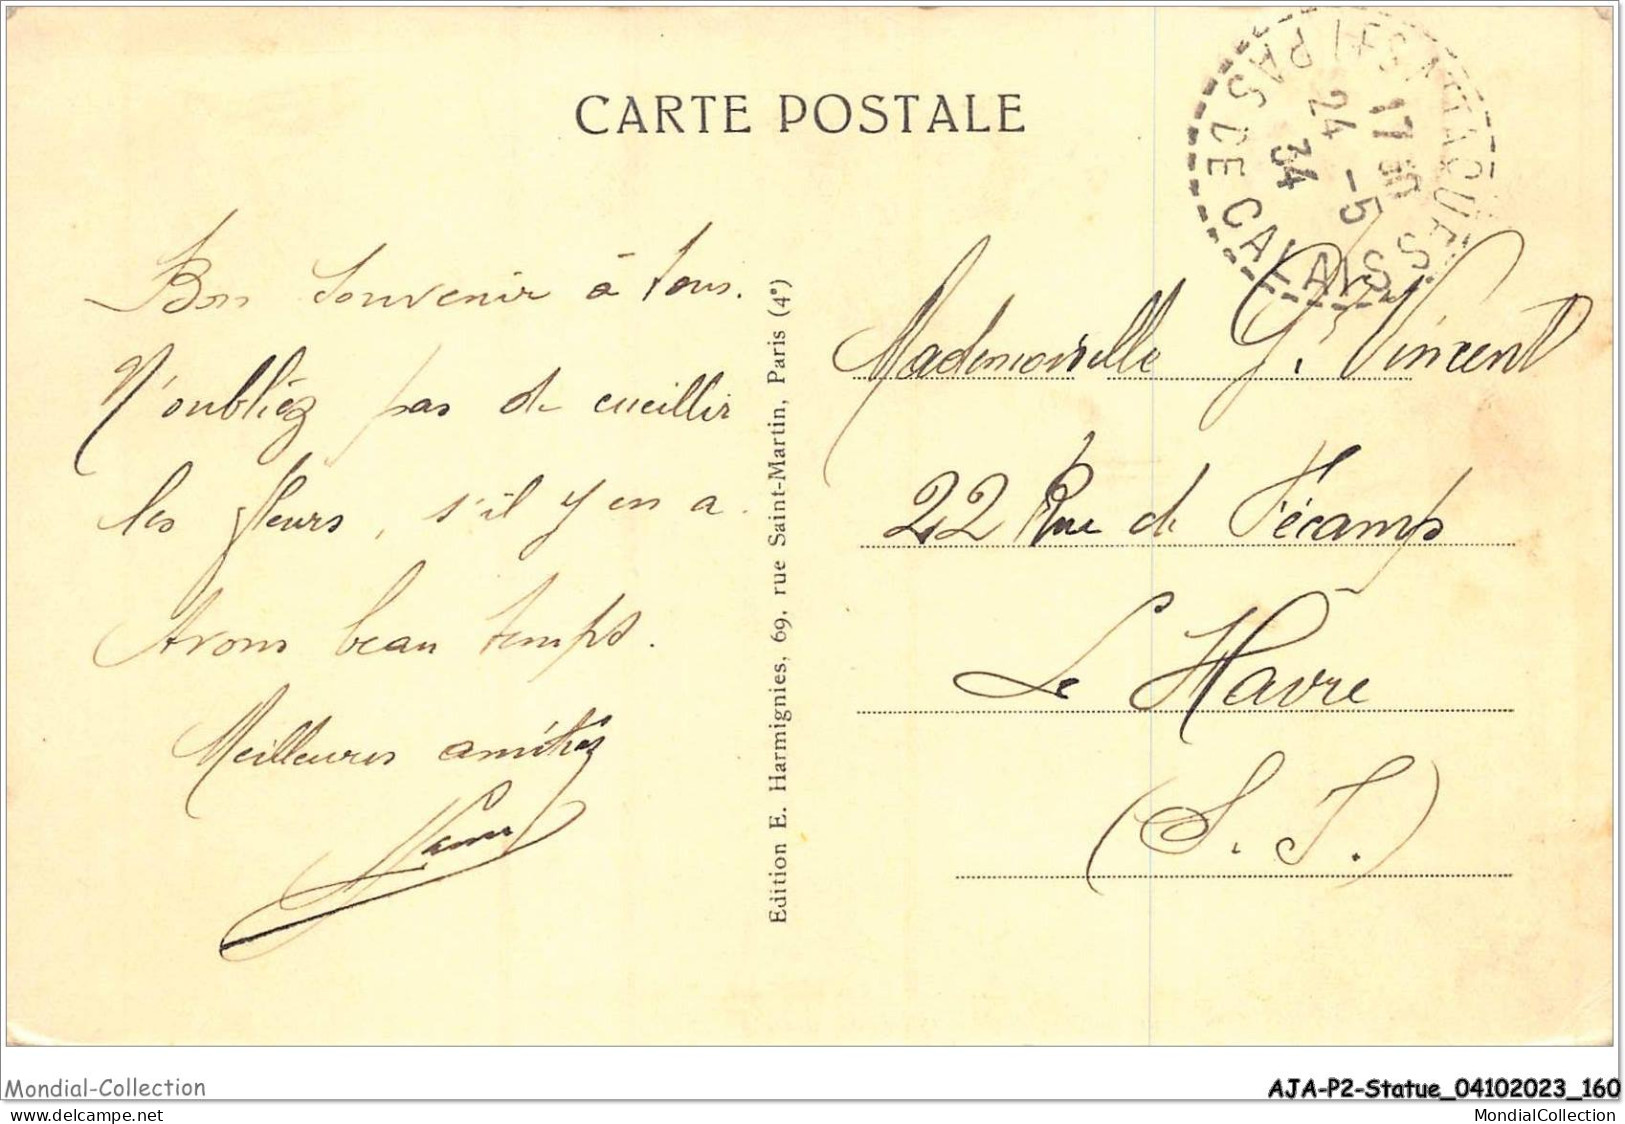 CARTE POSTALE
17 30
24 -5
34
PAS DE CALAIS
Bon souvenir à tous.
N'oubliez pas de cueillir
les fleurs, s'il y en a.
Avons beau temps.
Meilleures amitiés
Edition E. Harmignies, 69, rue Saint-Martin, Paris (4e)
Mademoiselle G. Vincent
22 Rue de Fécamp
Le Havre
(S. I.)
Mondial-Collection
AJA-P2-Statue_04102023_160
www.delcampe.net
MondialCollection